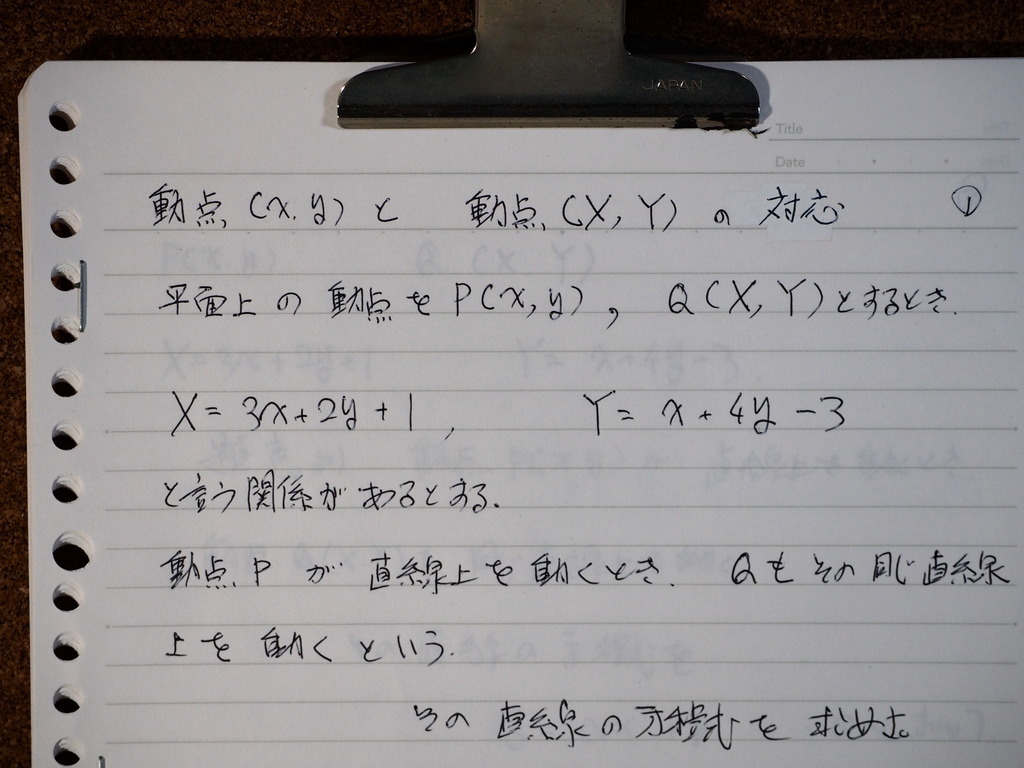 JAPAN
Title
Date
動点 (x,y) と 動点 (X, Y) の 対応 ①
平面上の 動点を P(x,y), Q(X,Y)とするとき.
X = 3x+2y+1, Y = x+4y-3
と言う関係があるとする.
動点 P が 直線上を動くとき. Qも その同じ直線
上を 動くという.
その 直線の方程式を 求めよ。